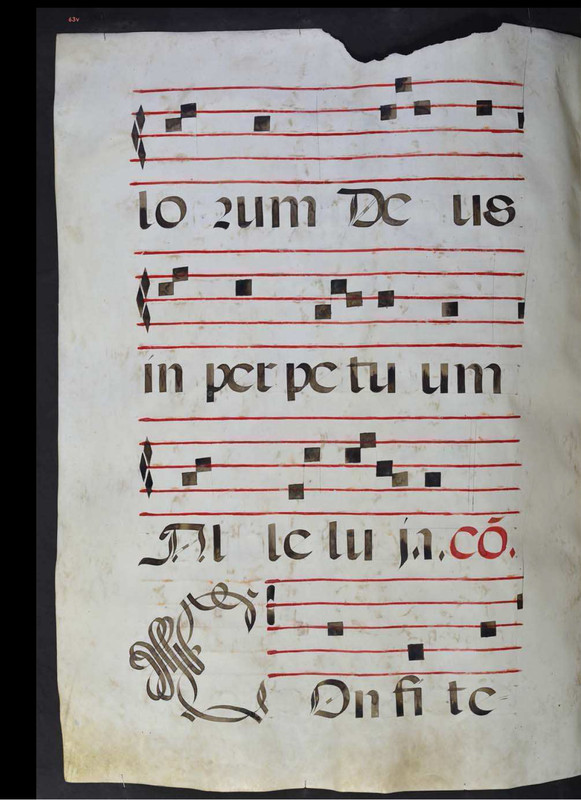 63v
lo rum De us
in per pe tu um
Al le lu ja. cō.
COn fi te